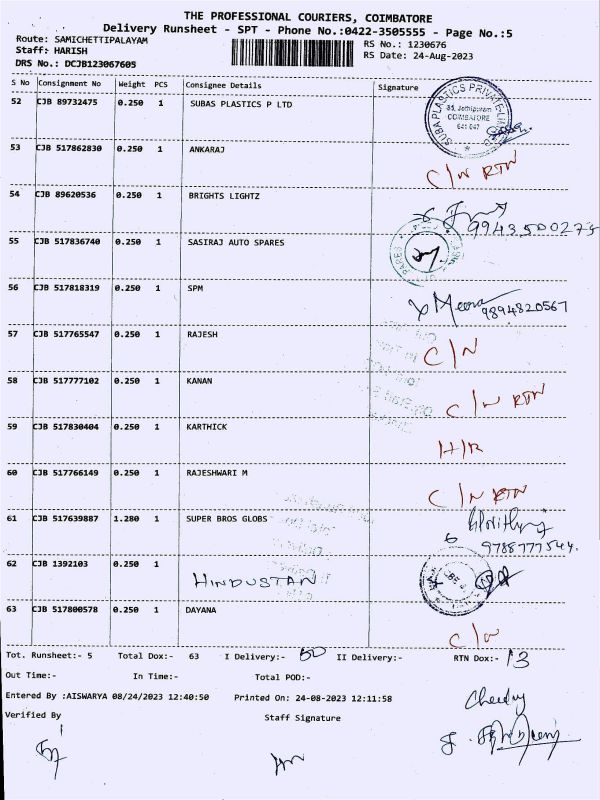 THE PROFESSIONAL COURIERS, COIMBATORE
Delivery Runsheet - SPT - Phone No.:0422-3505555 - Page No.:5
Route: SAMICHETTIPALAYAM
RS No.: 1230676
Staff: HARISH
RS Date: 24-Aug-2023
DRS No.: DCJB123067605
S No Consignment No Weight PCS Consignee Details Signature
52 CJB 89732475 0.250 1 SUBAS PLASTICS P LTD
SUBA PLASTICS PRIVATE
COIMBATORE
641 047
53 CJB 517862830 0.250 1 ANKARAJ C/N RTN
54 CJB 89620536 0.250 1 BRIGHTS LIGHTZ
55 CJB 517836740 0.250 1 SASIRAJ AUTO SPARES
56 CJB 517818319 0.250 1 SPM Meena 9894820567
57 CJB 517765547 0.250 1 RAJESH C/N
58 CJB 517777102 0.250 1 KANAN C/N RTN
59 CJB 517830404 0.250 1 KARTHICK
60 CJB 517766149 0.250 1 RAJESHWARI M C/N RTN
61 CJB 517639887 1.280 1 SUPER BROS GLOBS 9788777544.
62 CJB 1392103 0.250 1 HINDUSTAN
63 CJB 517800578 0.250 1 DAYANA C/N
Tot. Runsheet:- 5 Total Dox:- 63 I Delivery:- 50 II Delivery:- RTN Dox:- 13
Out Time:- In Time:- Total POD:-
Entered By :AISWARYA 08/24/2023 12:40:50 Printed On: 24-08-2023 12:11:58
Verified By Staff Signature